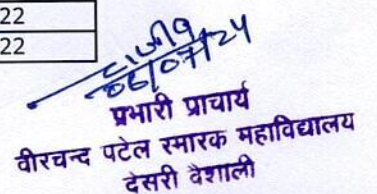 22
22
06/07/24
प्रभारी प्राचार्य
वीरचन्द पटेल स्मारक महाविद्यालय
देसरी वैशाली